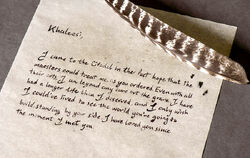 Khaleesi,
I came to the Citadel in the last hope that the
maesters could treat me as you ordered. Even with all
their arts I am beyond any cure but the grave. I have
had a longer life than I deserved and I only wish
I could've lived to see the world you're going to
build standing by your side. I have loved you since
the moment I met you